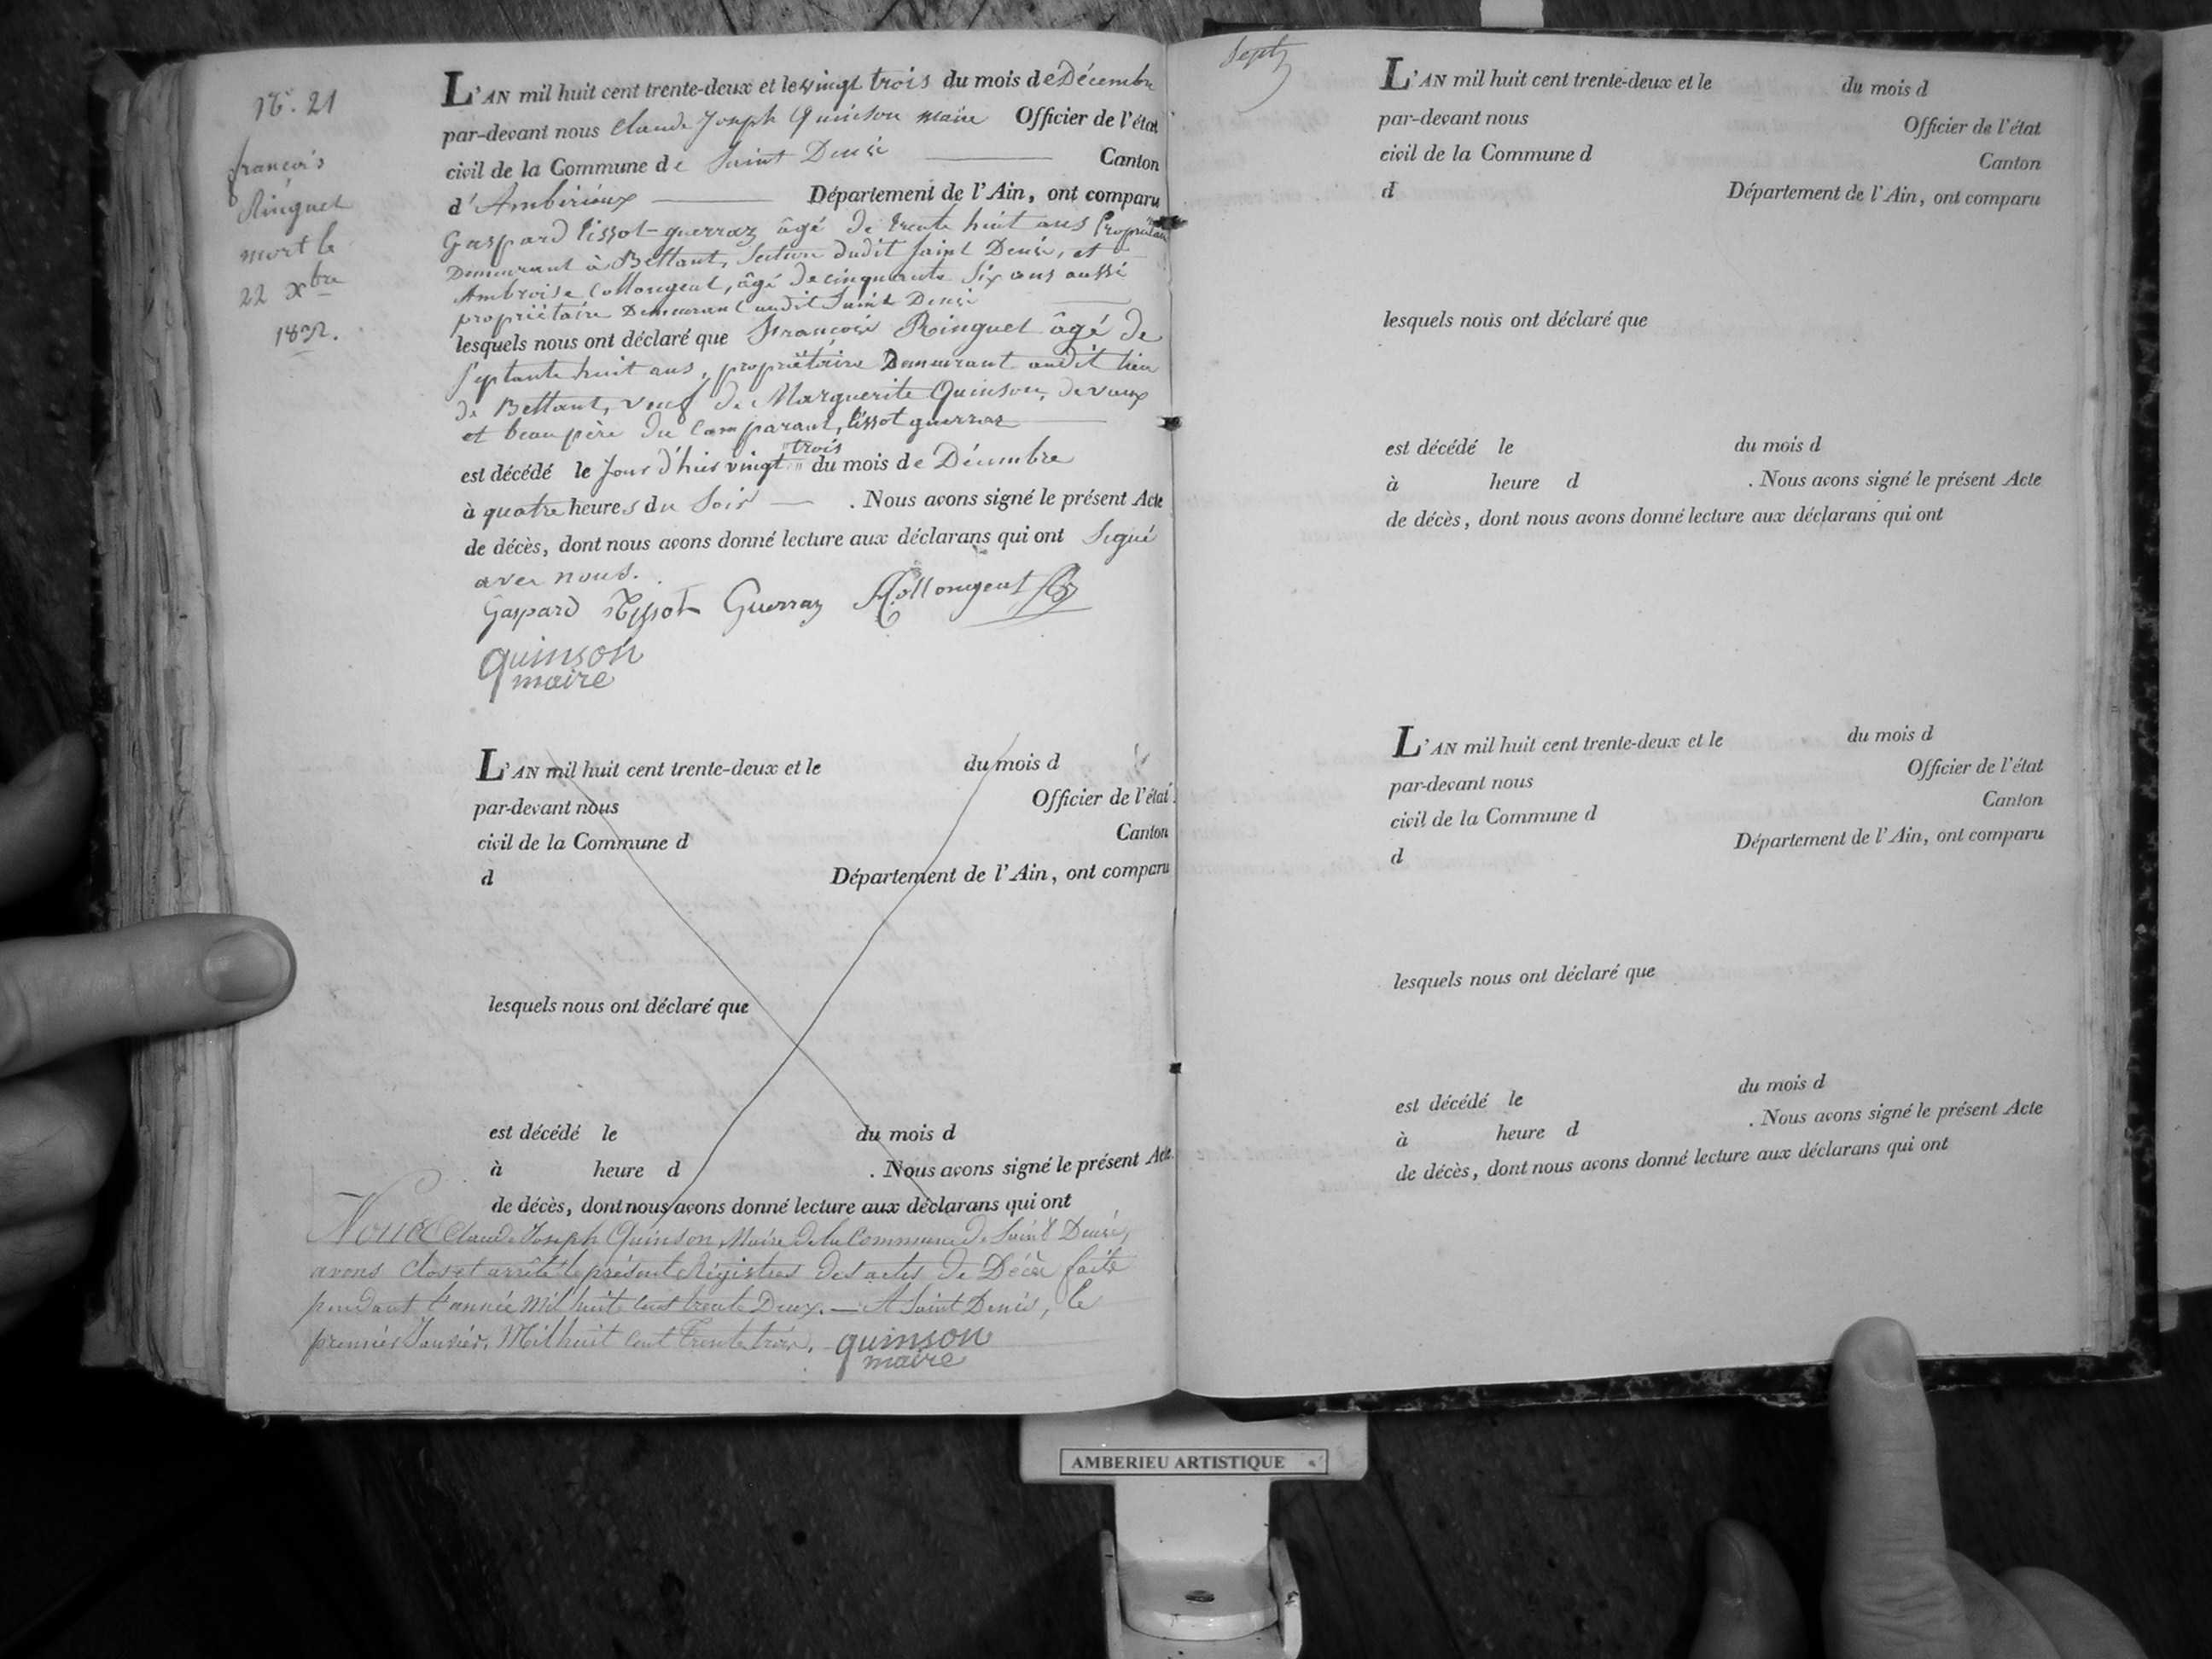 N°. 21
françois
Ringuet
mort le
22 Xbre
1832.
L'AN mil huit cent trente-deux et le vingt trois du mois de Décembre
par-devant nous Claude Joseph Quinson maire Officier de l'état
civil de la Commune de Saint Denis Canton
d'Ambérieux Département de l'Ain, ont comparu
Gaspard tissot-guerraz âgé de trente huit ans Propriétaire
Demeurant à Bettant, Section dudit Saint Denis, et
Ambroise Collongeat, âgé de cinquante six ans aussi
propriétaire Demeurant audit Saint Denis
lesquels nous ont déclaré que François Ringuet âgé de
septante huit ans, propriétaire Demeurant audit lieu
de Bettant, veuf de Marguerite Quinson, devaux
et beau père du Comparant, tissot guerraz
trois
est décédé le Jour d'hier vingt " du mois de Décembre
à quatre heures du Soir . Nous avons signé le présent Acte
de décès, dont nous avons donné lecture aux déclarans qui ont Signé
avec nous.
Gaspard Tissot Guerraz ACollongeat
quinson
maire
L'AN mil huit cent trente-deux et le du mois d
par-devant nous Officier de l'état
civil de la Commune d Canton
d Département de l'Ain, ont comparu
lesquels nous ont déclaré que
est décédé le du mois d
à heure d . Nous avons signé le présent Acte
de décès, dont nous avons donné lecture aux déclarans qui ont
Nous Claude Joseph Quinson, Maire de la Commune de Saint Denis,
avons clos et arrêté le présent Régistres des actes de Décès faits
pendant l'année Mil huit cent trente Deux. — A Saint Denis, le
premier Janvier, Mil huit cent Trente trois. quinson
maire
Sept
L'AN mil huit cent trente-deux et le du mois d
par-devant nous Officier de l'état
civil de la Commune d Canton
d Département de l'Ain, ont comparu
lesquels nous ont déclaré que
est décédé le du mois d
à heure d . Nous avons signé le présent Acte
de décès, dont nous avons donné lecture aux déclarans qui ont
L'AN mil huit cent trente-deux et le du mois d
par-devant nous Officier de l'état
civil de la Commune d Canton
d Département de l'Ain, ont comparu
lesquels nous ont déclaré que
est décédé le du mois d
à heure d . Nous avons signé le présent Acte
de décès, dont nous avons donné lecture aux déclarans qui ont
AMBERIEU ARTISTIQUE